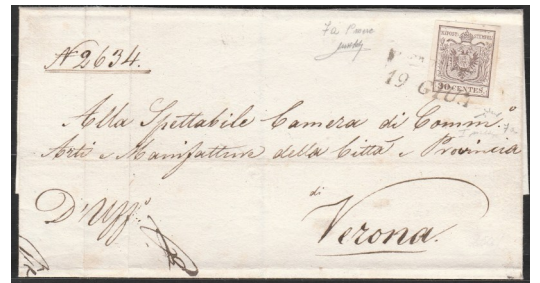 N 2634.
19 GIU.
30 CENTES.
Alla Spettabile Camera di Comm.o
Arti e Manifatture della Città e Provincia
di
D'Uff.o
Verona.